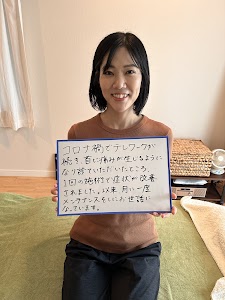 コロナ禍でテレワークが
続き、首に痛みが生じるように
なり診ていただいたところ、
1回の施術で症状が改善
されました。以来 月に一度
メンテナンスをしにお世話に
なっています。